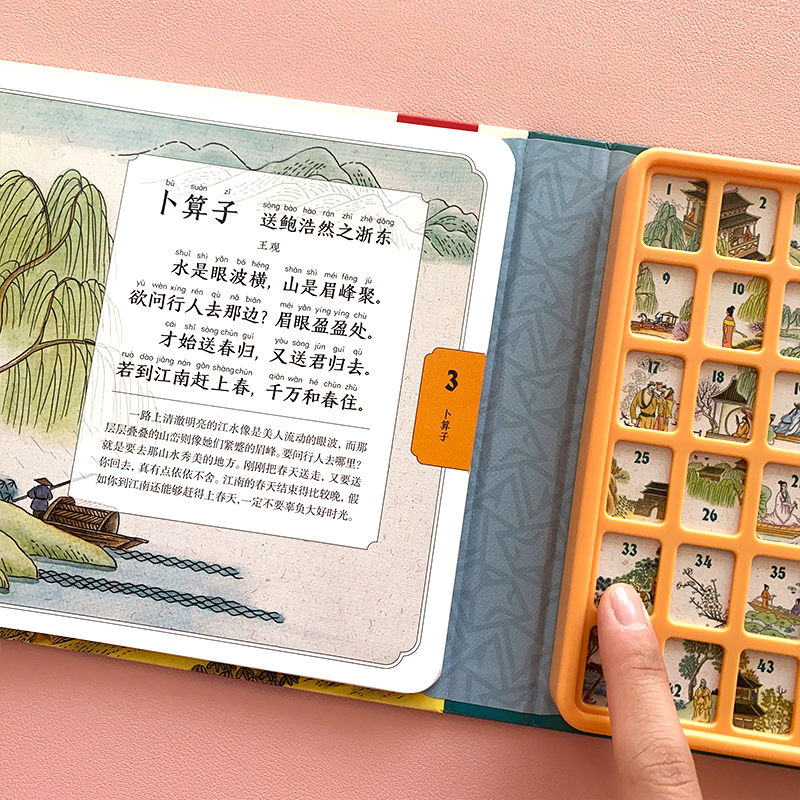 bǔ suàn zǐ sòng bào hào rán zhī zhè dōng
卜算子 送鲍浩然之浙东
王观
shuǐ shì yǎn bō héng shān shì méi fēng jù
水是眼波横，山是眉峰聚。
yù wèn xíng rén qù nǎ biān méi yǎn yíng yíng chù
欲问行人去那边？眉眼盈盈处。
cái shǐ sòng chūn guī yòu sòng jūn guī qù
才始送春归，又送君归去。
ruò dào jiāng nán gǎn shàng chūn qiān wàn hé chūn zhù
若到江南赶上春，千万和春住。
一路上清澈明亮的江水像是美人流动的眼波，而那
层层叠叠的山峦则像她们紧蹙的眉峰。要问行人去哪里？
就是要去那山水秀美的地方。刚刚把春天送走，又要送
你回去，真有点依依不舍。江南的春天结束得比较晚，假
如你到江南还能够赶得上春天，一定不要辜负大好时光。
3
卜算子
1
2
9
10
17
18
25
26
33
34
35
42
43